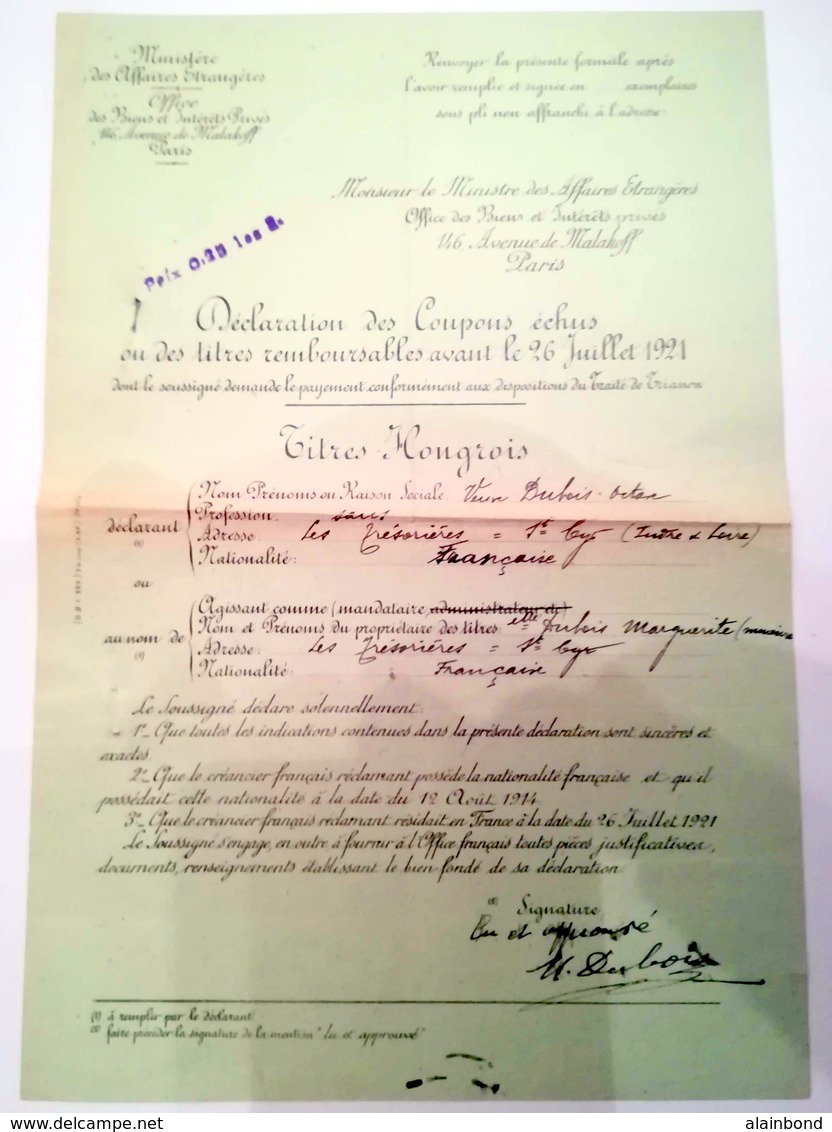 Ministère
des Affaires Etrangères
Office
des Biens et Intérêts Privés
146 Avenue de Malakoff
Paris
Renvoyer la présente formule après
l'avoir remplie et signée en exemplaires
sous pli non affranchi à l'adresse:
Monsieur le Ministre des Affaires Etrangères
Office des Biens et Intérêts privés
146, Avenue de Malakoff
Paris
Prix 0.25 les 2.
Déclaration des Coupons échus
ou des titres remboursables avant le 26 Juillet 1921
dont le soussigné demande le payement conformément aux dispositions du Traité de Trianon
Titres Hongrois
déclarant
(1)
Nom Prénoms ou Raison Sociale: Veuve Dubois-
Profession: sans
Adresse: Les Trésorières = St Cyr (Indre & Loire)
Nationalité: Française
ou
au nom de
(1)
Agissant comme (mandataire, administrateur de)
Nom et Prénoms du propriétaire des titres: elle = Dubois Marguerite
Adresse: Les Trésorières = St Cyr
Nationalité: Française
Le Soussigné déclare solennellement:
1º_ Que toutes les indications contenues dans la présente déclaration sont sincères et
exactes
2º_ Que le créancier français réclamant possède la nationalité française et qu'il
possédait cette nationalité à la date du 12 Août 1914
3º_ Que le créancier français réclamant résidait en France à la date du 26 Juillet 1921
Le Soussigné s'engage, en outre à fournir à l'Office français toutes pièces justificatives,
documents, renseignements établissant le bien fondé de sa déclaration
(2) Signature
Lu et approuvé
M. Dubois
(1) à remplir par le déclarant
(2) faire précéder la signature de la mention "lu et approuvé"
alainbond